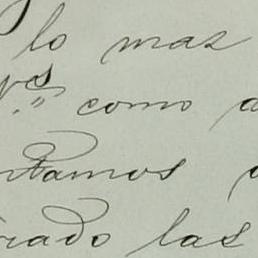 lo mas
como
tamos
rado las